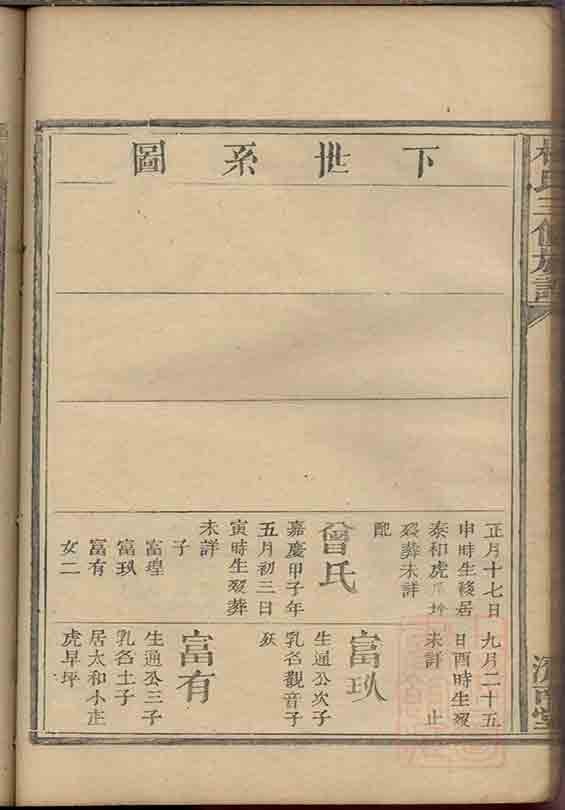 氏三修族譜
下世系圖
正月十七日
申時生移居
泰和虎
歿葬未詳
配
曾氏
嘉慶甲子年
五月初三日
寅時生歿葬
未詳
子
富瑝
富玖
富有
女二
九月二十五
日酉時生歿
未詳 止
富玖
生通公次子
乳名觀音子
殀
富有
生通公三子
乳名土子
居太和小庄
虎早坪
濟南堂